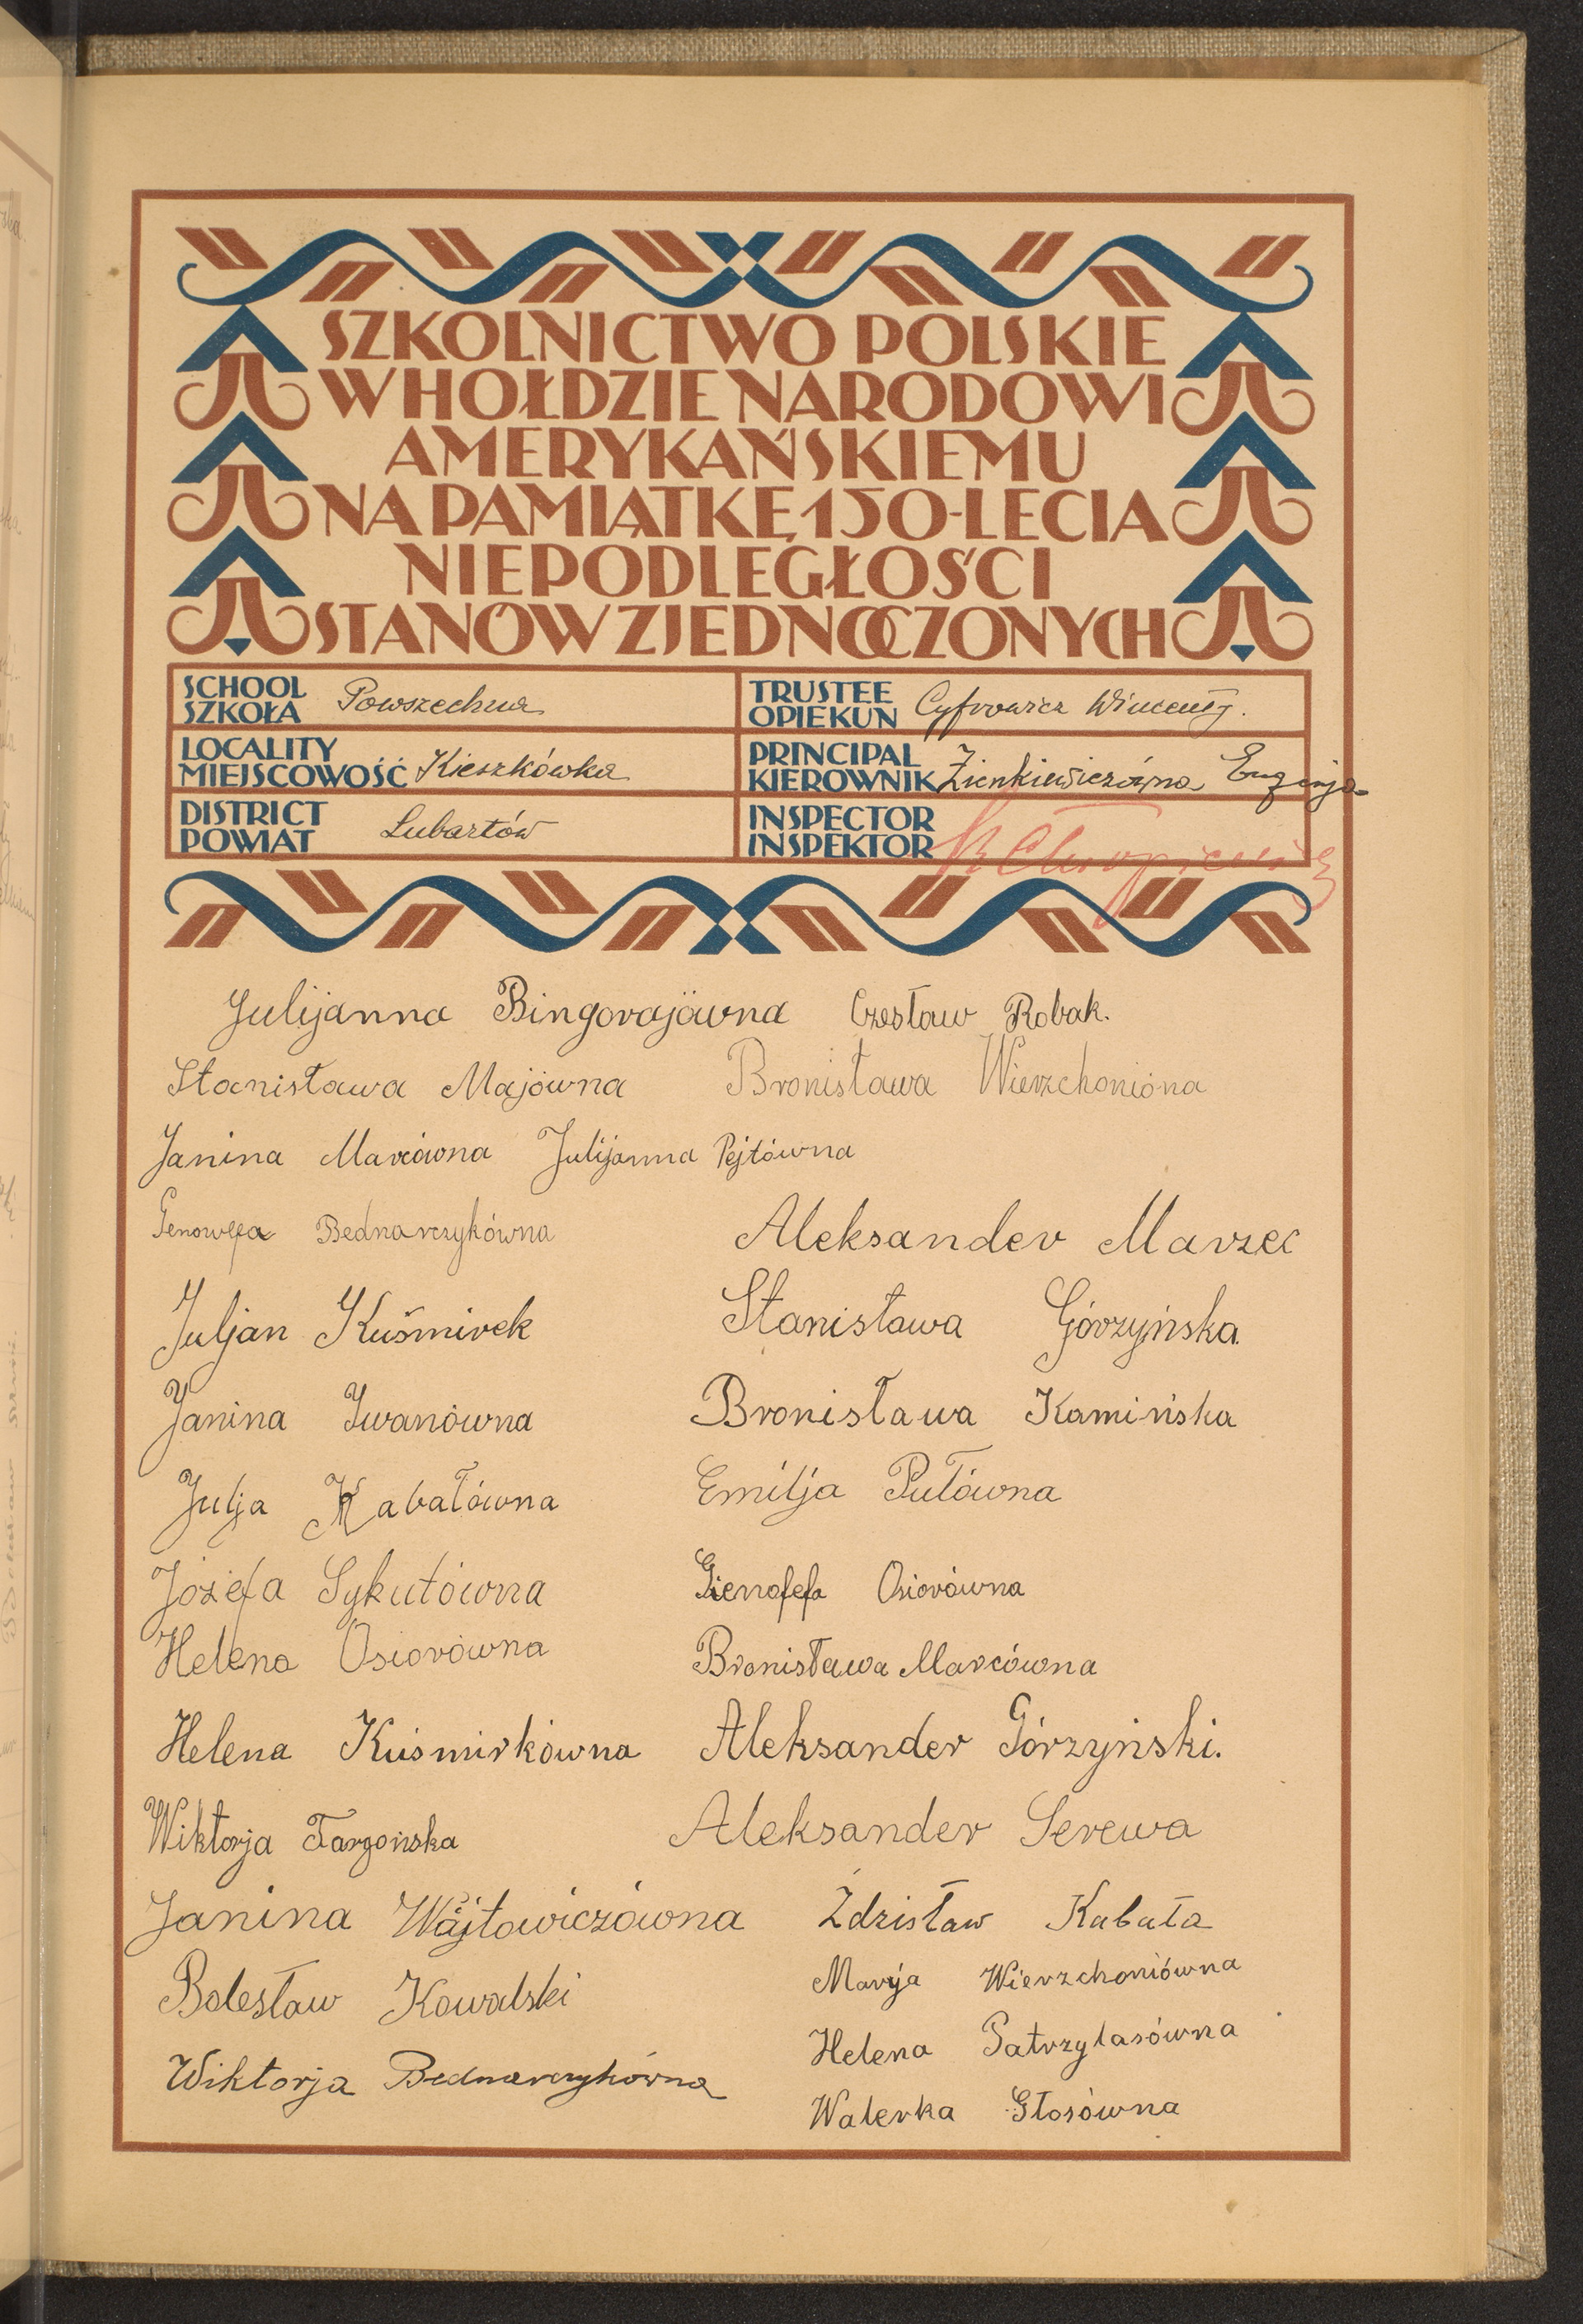 SZKOLNICTWO POLSKIE
W HOŁDZIE NARODOWI
AMERYKAŃSKIEMU
NA PAMIĄTKĘ 150-LECIA
NIEPODLEGŁOŚCI
STANÓW ZJEDNOCZONYCH
SCHOOL
SZKOŁA Powszechna
TRUSTEE
OPIEKUN Cyfrowicz Wincenty.
LOCALITY
MIEJSCOWOŚĆ Kieszkówka
PRINCIPAL
KIEROWNIK Zienkiewiczówna Eugenja
DISTRICT
POWIAT Lubartów
INSPECTOR
INSPEKTOR
Julijanna Bingorajówna Czesław Robak.
Stanisława Majówna Bronisława Wierzchonióna
Janina Marcówna Julijanna Pejtówna
Genowefa Bednarczykówna Aleksander Marzec
Juljan Kuśmirek Stanisława Górzyńska
Janina Iwanówna Bronisława Kamińska
Julja Kabałówna Emilja Putówna
Józefa Sykutówna Gienofefa Osiorówna
Helena Osiorówna Bronisława Marcówna
Helena Kuśmirkówna Aleksander Górzyński.
Wiktorja Targońska Aleksander Serewa
Janina Wójtowiczówna Zdzisław Kabała
Bolesław Kowalski Maryja Wierzchoniówna
Helena Patrzylasówna
Wiktorja Bednarczykówna
Walerka Głosówna